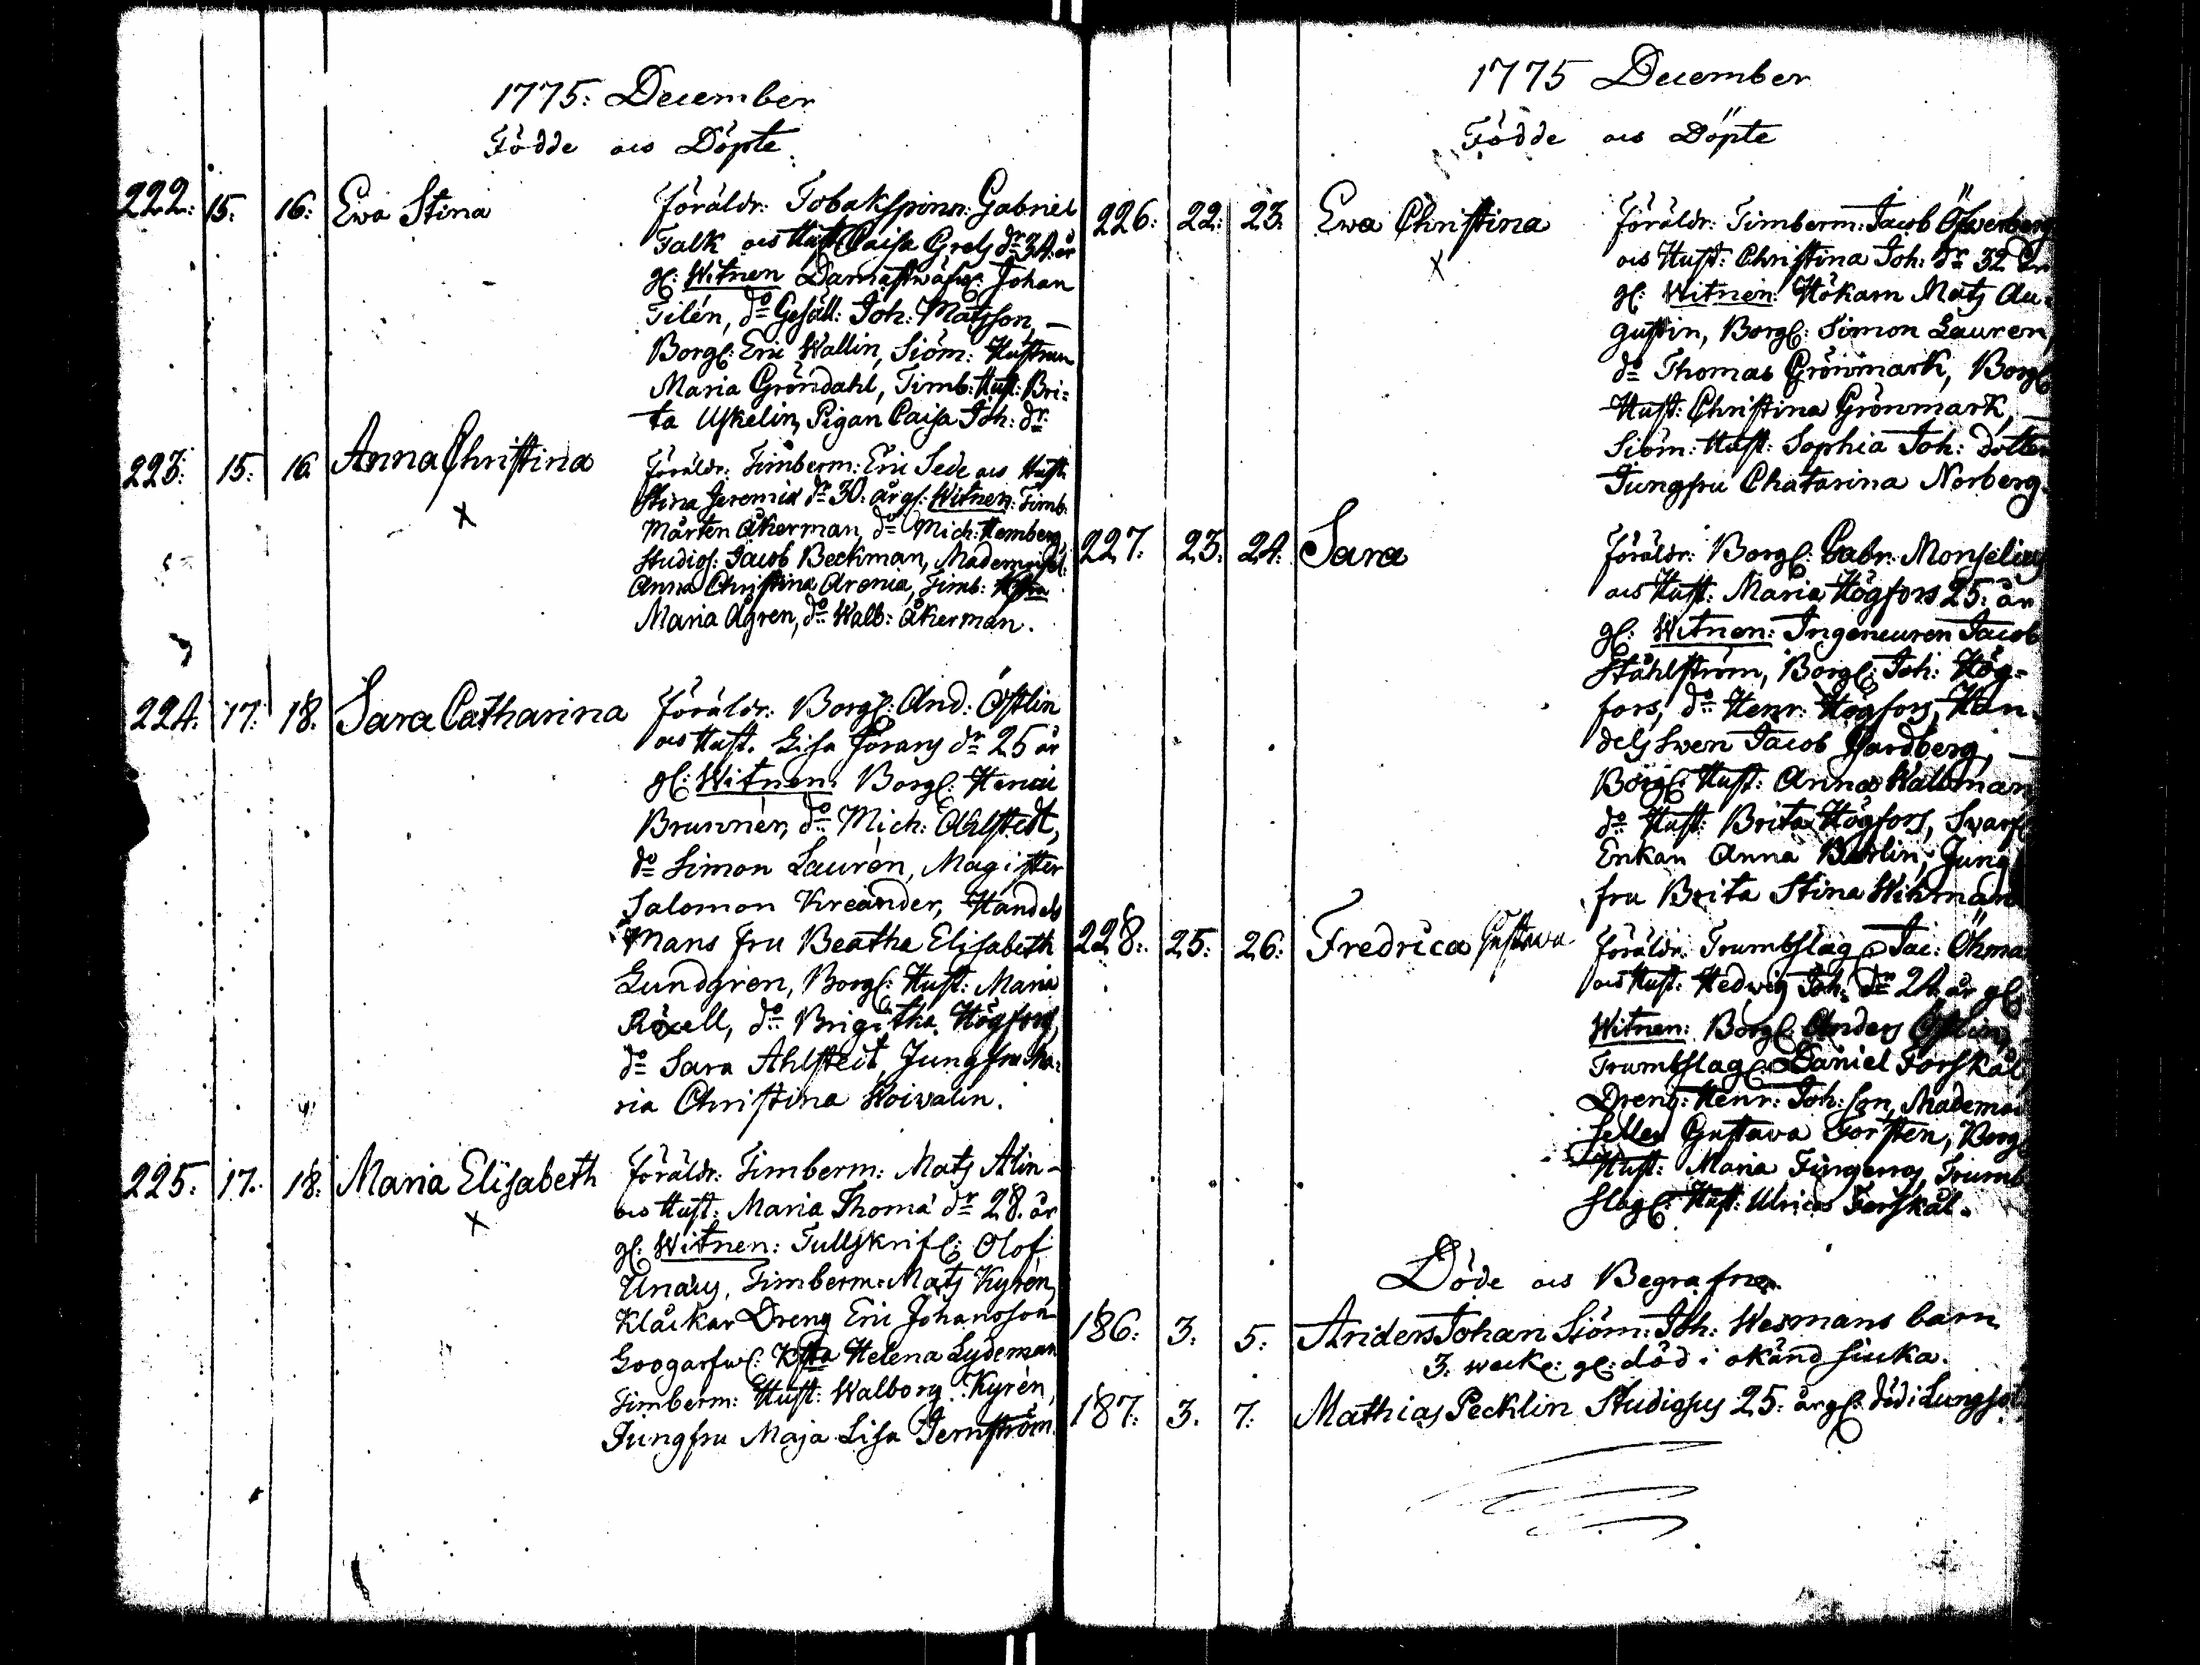 1775: December
Födde och Döpte
222. 15. 16. Ewa Stina
Föräldr: Tobakspinn: Gabriel
Falk och Hust: Caisa Grels dr 34 år
gl: Witnen Damastwäfw: Johan
Tilén, do Gesäll: Joh: Matsson,
Borgl: Eric Wallin, Siöm: Hustrun
Maria Gröndahl, Timb: Hust: Bri=
ta Uskelin, Pigan Caisa Joh: dr:
223. 15. 16 Anna Christina
x
Föräldr: Timberm: Eric Sede och Hust:
Stina Jeremiæ dr 30. år gl: Witnen: Timb:
Mårten Åkerman, do Mich: Hemberg,
Studios: Jacob Beckman, Mademoisel:
Anna Christina Arenia, Timb: Hstra
Maria Ågren, do Walb: Åkerman.
224. 17. 18. Sara Catharina
Föräldr: Borgl: And: Östlin
och Hust. Lisa Görans dr 25 år
gl: Witnen. Borgl: Henric
Brunnér, do Mich: Ahlstedt,
do Simon Laurén, Magister
Salomon Kreander, Handels
Mans Fru Beatha Elisabeth
Lundgren, Borgl: Hust: Maria
Röxell, do Brigitha Högfors,
do Sara Ahlstedt, Jungfru Ma=
ria Christina Woivalin.
225. 17. 18. Maria Elisabeth
x
Föräldr: Timberm: Mats Alin
och Hust: Maria Thomæ dr 28. år
gl: Witnen: Tullskrifl: Olof
Unæus, Timberm: Mats Kyrén,
Klåckar Dreng Eric Johansson
Hstra Helena Lydeman
Timberm: Hust: Walborg Kyrén,
Jungfru Maja Lisa Jernström.
1775 December
Födde och Döpte
226. 22. 23. Ewa Christina
x
Föräldr: Timberm: Jacob Öfwerberg
och Hust: Christina Joh: dr 32 år
gl: Witnen: Hökarn Mats Au=
gustin, Borgl: Simon Lauren,
do Thomas Grönmark, Borgl:
Hust: Christina Grönmark,
Siöm: Hust: Sophia Joh: dotter
Jungfru Chatarina Norberg.
227. 23. 24. Sara
Föräldr: Borgl: Gabr: Monselius
och Hust: Maria Högfors 25. år
gl: Witnen: Ingeneuren Jacob
Ståhlström, Borgl: Joh: Hög=
fors, do Henr: Högfors, Han=
dels Swen Jacob Gardberg,
Borgl: Hust: Anna Wallman
do Hust: Brita Högfors, Swarf
Enkan Anna Berlin, Jung
fru Brita Stina Wikman
228. 25. 26. Fredrica Gustava
Föräldr: Trumbslag: Jac: Öhma
och Hust: Hedwig Joh: dr 24. år gl:
Witnen: Borgl: Anders Östlin,
Trumbslag: Daniel Forskål,
Dreng: Henr: Joh: son, Mademoi
sellen Gustava Forsten, Borg
Hust: Maria Fingerroos, Trumb
slag: Hust: Ulrica Forskål.
Döde och Begrafne
186. 3. 5. Anders Johan Siöm: Joh: Wesmans barn
3. weck: gl: död i okänd siuka.
187. 3. 7. Mathias Pecklin Studiosus 25. år gl: död i Lungsot